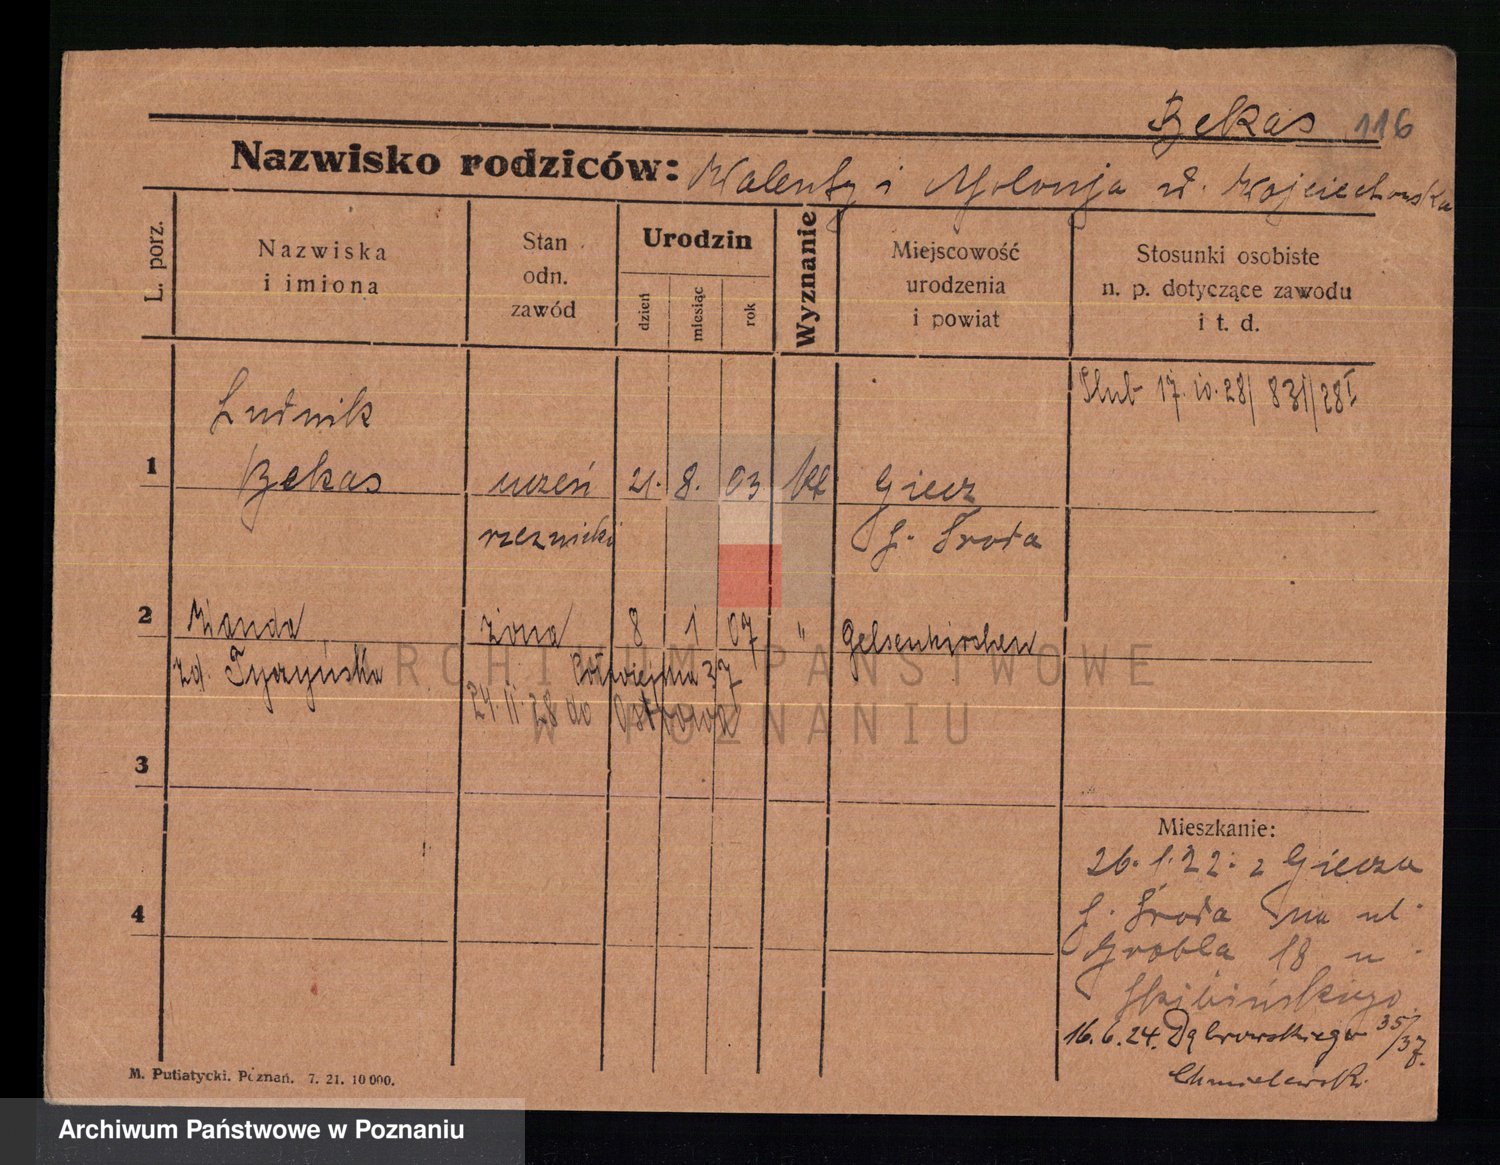 Bękas 116
Nazwisko rodziców: Walenty i Apolonja z d. Wojciechowska
L. porz.
Nazwiska
i imiona
Stan
odn.
zawód
Urodzin
dzień
miesiąc
rok
Wyznanie
Miejscowość
urodzenia
i powiat
Stosunki osobiste
n. p. dotyczące zawodu
i t. d.
Ślub 17.10.28/ 831/28 I
Ludwik
1 Bękas uczeń 21. 8. 03 kat Giecz
rzeznicki p. Środa
2 Wanda żona 8 1 07 " Gelsenkirchen
zd. Tyczyńska Półwiejska 37
24.11.28 do Ostrowa
3
4
Mieszkanie:
26.1.22. z Giecza
p. Środa na ul.
Grobla 18 u
Skibińskiego
16.6.24. Dąbrowskiego 35/37.
Chmielewski.
M. Putiatycki. Poznań. 7. 21. 10 000.
ARCHIWUM PAŃSTWOWE
W POZNANIU
Archiwum Państwowe w Poznaniu